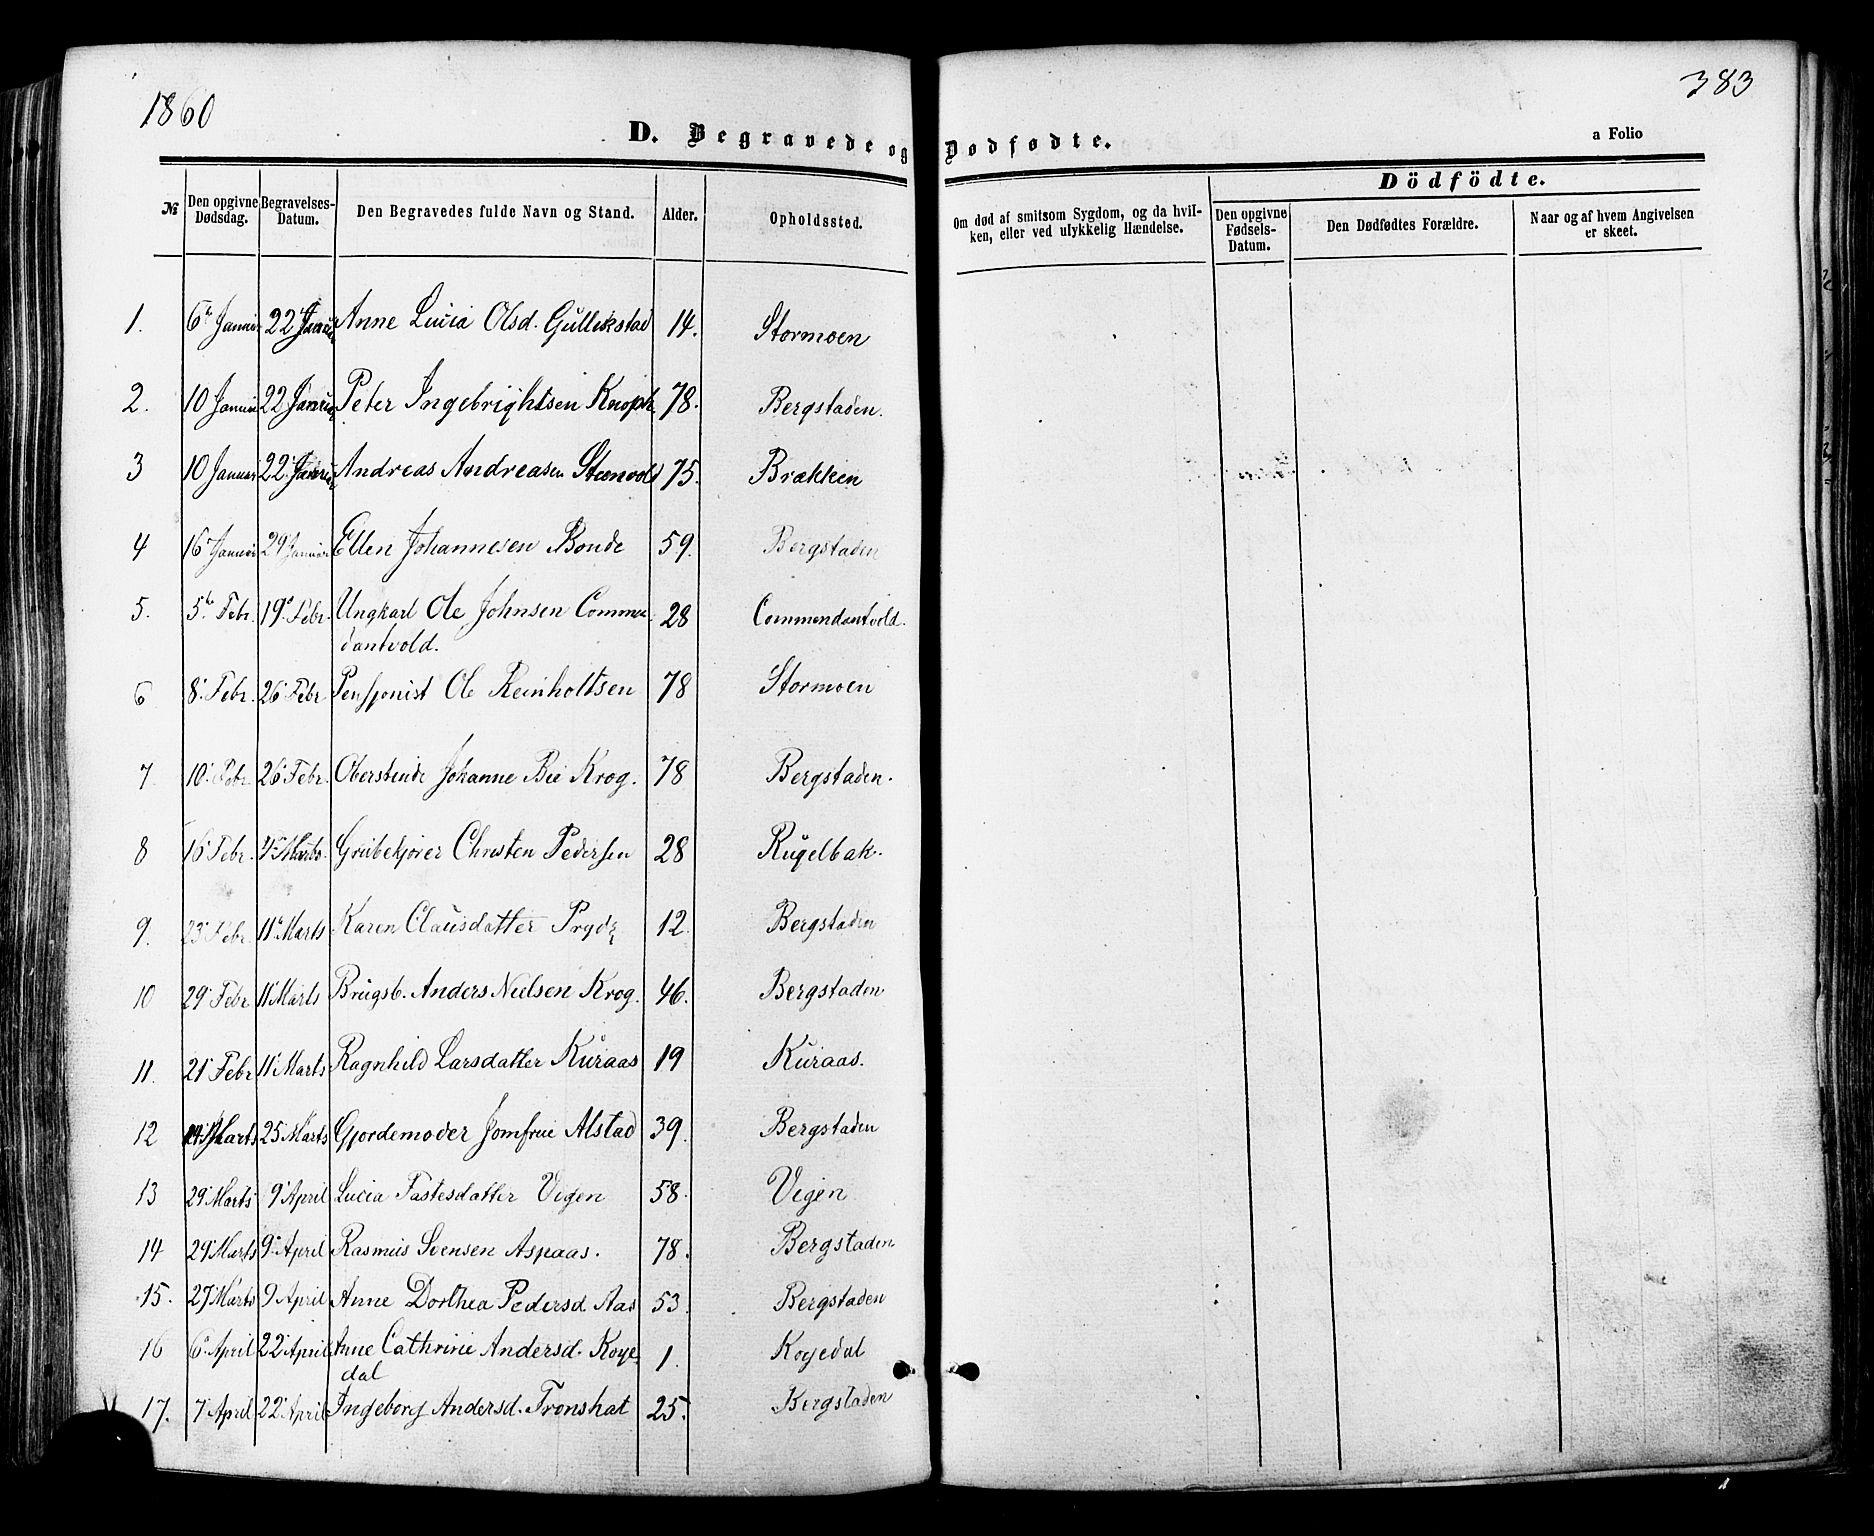 1860
383
D. Begravede og Dødfødte.
a Folio
Dödfödte.
№
Den opgivne Dødsdag.
Begravelses-Datum.
Den Begravedes fulde Navn og Stand.
Alder.
Opholdssted.
Om død af smitsom Sygdom, og da hvil-
ken, eller ved ulykkelig Hændelse.
Den opgivne Fødsels-Datum.
Den Dødfødtes Forældre.
Naar og af hvem Angivelsen er skeet.
1. 6te Januar 22 Januar Anne Lucia Olsd. Gullikstad 14. Stormoen
2. 10 Januar 22 Januar Peter Ingebrightsen Knoph 78. Bergstaden.
3 10 Januar 22 Januar Andreas Andreasen Steenvold 75. Brækken
4 16 Januar 29 Januar Ellen Johannesen Bonde 59. Bergstaden
5. 5te Febr. 19 Febr. Ungkarl Ole Johnsen Comman 28 Commendantvold.
dantvold.
6 8. Febr. 26 Febr Pensjonist Ole Reinholtsen 78 Stormoen
7. 10. Febr. 26 Febr. Johanne Bie Krog. 78 Bergstaden.
8 16 Febr. 4 Marts. Grubekjører Christen Pedersen 28 Rugelbak.
9. 23 Febr. 11 Marts Karen Clausdatter Pryds 12. Bergstaden
10 29 Febr 11 Marts Brugsb. Anders Nielsen Krog. 46. Bergstaden
11. 21 Febr 11 Marts Ragnhild Larsdatter Kuraas 19 Kuraas.
12 14 Marts 25 Marts Gjordemoder Jomfrue Alstad 39. Bergstaden
13 29 Marts 9 April Lucia Tastesdatter Vigen 58. Vigen
14 29 Marts 9 April Rasmus Svensen Aspaas. 78. Bergstaden
15. 27 Marts 9 April Anne Dorthea Pedersd Aas 53. Bergstaden
16 6 April 22 April Anne Cathrine Andersd. Koje 1. Kojedal
dal
17. 7 April 22 April Ingeborg Andersd. Tronshat 25. Bergstaden